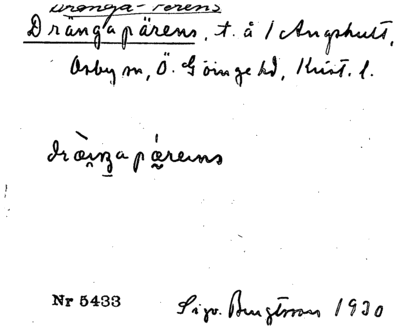 Dränga-Perens
Drängapärens, t. å 1 Ängshult,
Osby sn, Ö. Göinge hd, Krist. l.
Nr 5433
Sigv. Bengtsson 1930